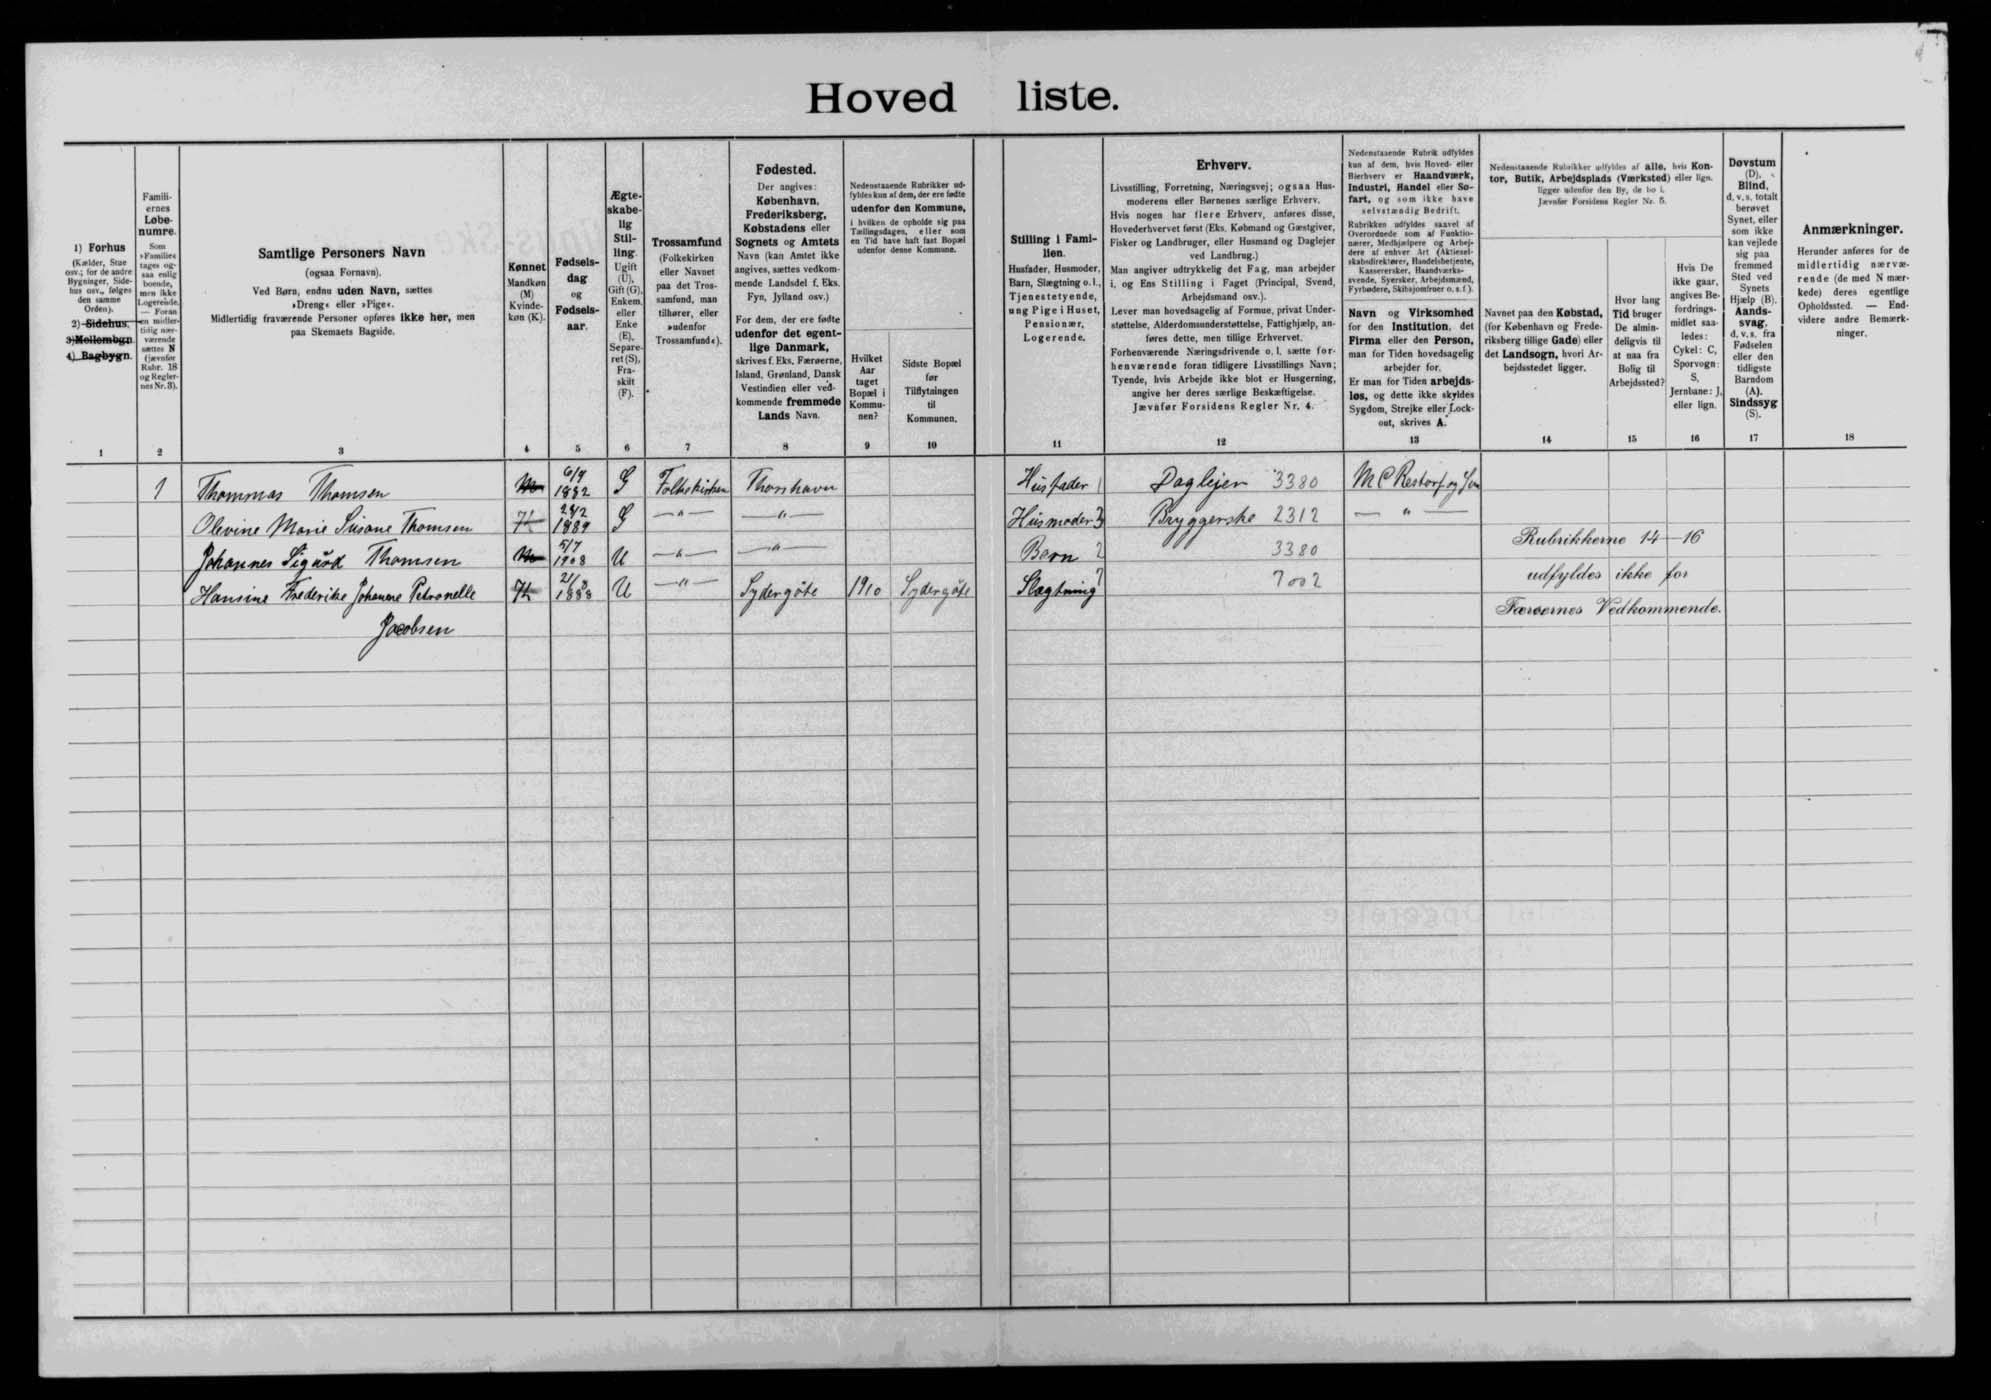 Hoved liste.
1) Forhus
(Kælder, Stue
osv.; for de andre
Bygninger, Side-
hus osv., følges
den samme
Orden).
2) Sidehus,
3) Mellembgn.
4) Bagbygn.
Famili-
ernes
Løbe-
numre.
Som
»Familie«
tages og-
saa enlig
boende,
men ikke
Logerende.
— Foran
en midler-
tidig nær-
værende
sættes N
(jævnfør
Rubr. 18
og Regler-
nes Nr. 3).
Samtlige Personers Navn
(ogsaa Fornavn).
Ved Børn, endnu uden Navn, sættes
»Dreng« eller »Pige«.
Midlertidig fraværende Personer opføres ikke her, men
paa Skemaets Bagside.
Kønnet
Mandkøn
(M)
Kvinde-
køn (K).
Fødsels-
dag
og
Fødsels-
aar.
Ægte-
skabe-
lig
Stil-
ling.
Ugift
(U),
Gift (G),
Enkem.
eller
Enke
(E),
Separe-
ret (S),
Fra-
skilt
(F).
Trossamfund
(Folkekirken
eller Navnet
paa det Tros-
samfund, man
tilhører, eller
»udenfor
Trossamfund«).
Fødested.
Der angives:
København,
Frederiksberg,
Købstadens eller
Sognets og Amtets
Navn (kan Amtet ikke
angives, sættes vedkom-
mende Landsdel f. Eks.
Fyn, Jylland osv.)
For dem, der ere fødte
udenfor det egent-
lige Danmark,
skrives f. Eks. Færøerne,
Island, Grønland, Dansk
Vestindien eller ved-
kommende fremmede
Lands Navn.
Nedenstaaende Rubrikker ud-
fyldes kun af dem, der ere fødte
udenfor den Kommune,
i hvilken de opholde sig paa
Tællingsdagen, eller som
en Tid have haft fast Bopæl
udenfor denne Kommune.
Hvilket
Aar
taget
Bopæl i
Kommu-
nen?
Sidste Bopæl
før
Tilflytningen
til
Kommunen.
Stilling i Fami-
lien.
Husfader, Husmoder,
Barn, Slægtning o. l.,
Tjenestetyende,
ung Pige i Huset,
Pensionær,
Logerende.
Erhverv.
Livsstilling, Forretning, Næringsvej; ogsaa Hus-
moderens eller Børnenes særlige Erhverv.
Hvis nogen har flere Erhverv, anføres disse,
Hovederhvervet først (Eks. Købmand og Gæstgiver,
Fisker og Landbruger, eller Husmand og Daglejer
ved Landbrug.)
Man angiver udtrykkelig det Fag, man arbejder
i, og Ens Stilling i Faget (Principal, Svend,
Arbejdsmand osv.).
Lever man hovedsagelig af Formue, privat Under-
støttelse, Alderdomsunderstøttelse, Fattighjælp, an-
føres dette, men tillige Erhvervet.
Forhenværende Næringsdrivende o. l. sætte for-
henværende foran tidligere Livsstillings Navn;
Tyende, hvis Arbejde ikke blot er Husgerning,
angive her deres særlige Beskæftigelse.
Jævnfør Forsidens Regler Nr. 4.
Nedenstaaende Rubrik udfyldes
kun af dem, hvis Hoved- eller
Bierhverv er Haandværk,
Industri, Handel eller Sø-
fart, og som ikke have
selvstændig Bedrift.
Rubrikken udfyldes saavel af
Overordnede som af Funktio-
nærer, Medhjælpere og Arbej-
dere af enhver Art (Aktiesel-
skabsdirektører, Handelsbetjente,
Kasserersker, Haandværks-
svende, Syersker, Arbejdsmænd,
Fyrbødere, Skibsjomfruer o. s. f.).
Navn og Virksomhed
for den Institution, det
Firma eller den Person,
man for Tiden hovedsagelig
arbejder for.
Er man for Tiden arbejds-
løs, og dette ikke skyldes
Sygdom, Strejke eller Lock-
out, skrives A.
Nedenstaaende Rubrikker udfyldes af alle, hvis Kon-
tor, Butik, Arbejdsplads (Værksted) eller lign.
ligger udenfor den By, de bo i.
Jævnfør Forsidens Regler Nr. 5.
Navnet paa den Købstad,
(for København og Frede-
riksberg tillige Gade) eller
det Landsogn, hvori Ar-
bejdsstedet ligger.
Hvor lang
Tid bruger
De almin-
deligvis til
at naa fra
Bolig til
Arbejdssted?
Hvis De
ikke gaar,
angives Be-
fordrings-
midlet saa-
ledes:
Cykel: C,
Sporvogn:
S,
Jernbane: J,
eller lign.
Døvstum
(D).
Blind,
d. v. s. totalt
berøvet
Synet, eller
som ikke
kan vejlede
sig paa
fremmed
Sted ved
Synets
Hjælp (B).
Aands-
svag,
d. v. s. fra
Fødselen
eller den
tidligste
Barndom
(A).
Sindssyg
(S).
Anmærkninger.
Herunder anføres for de
midlertidig nærvæ-
rende (de med N mær-
kede) deres egentlige
Opholdssted. — End-
videre andre Bemærk-
ninger.
1 2 3 4 5 6 7 8 9 10 11 12 13 14 15 16 17 18
1 Thommas Thomsen M 6/9 1882 G Folkekirken Thorshavn Husfader 1 Daglejer 3380 M C Restorf og Søn
Olevine Marie Susane Thomsen K 1889 G —"— —"— Husmoder 3 Bryggerske 2312 — " —
Johannes Sigurd Thomsen M 5/7 1908 U —"— —"— Barn 2 3380
Hansine Frederikke Johanne Petronelle K 21/8 1888 U —"— Sydergöte 1910 Sydergöte Slægtning 7 7002
Jacobsen
Rubrikkerne 14—16
udfyldes ikke for
Færøernes Vedkommende.